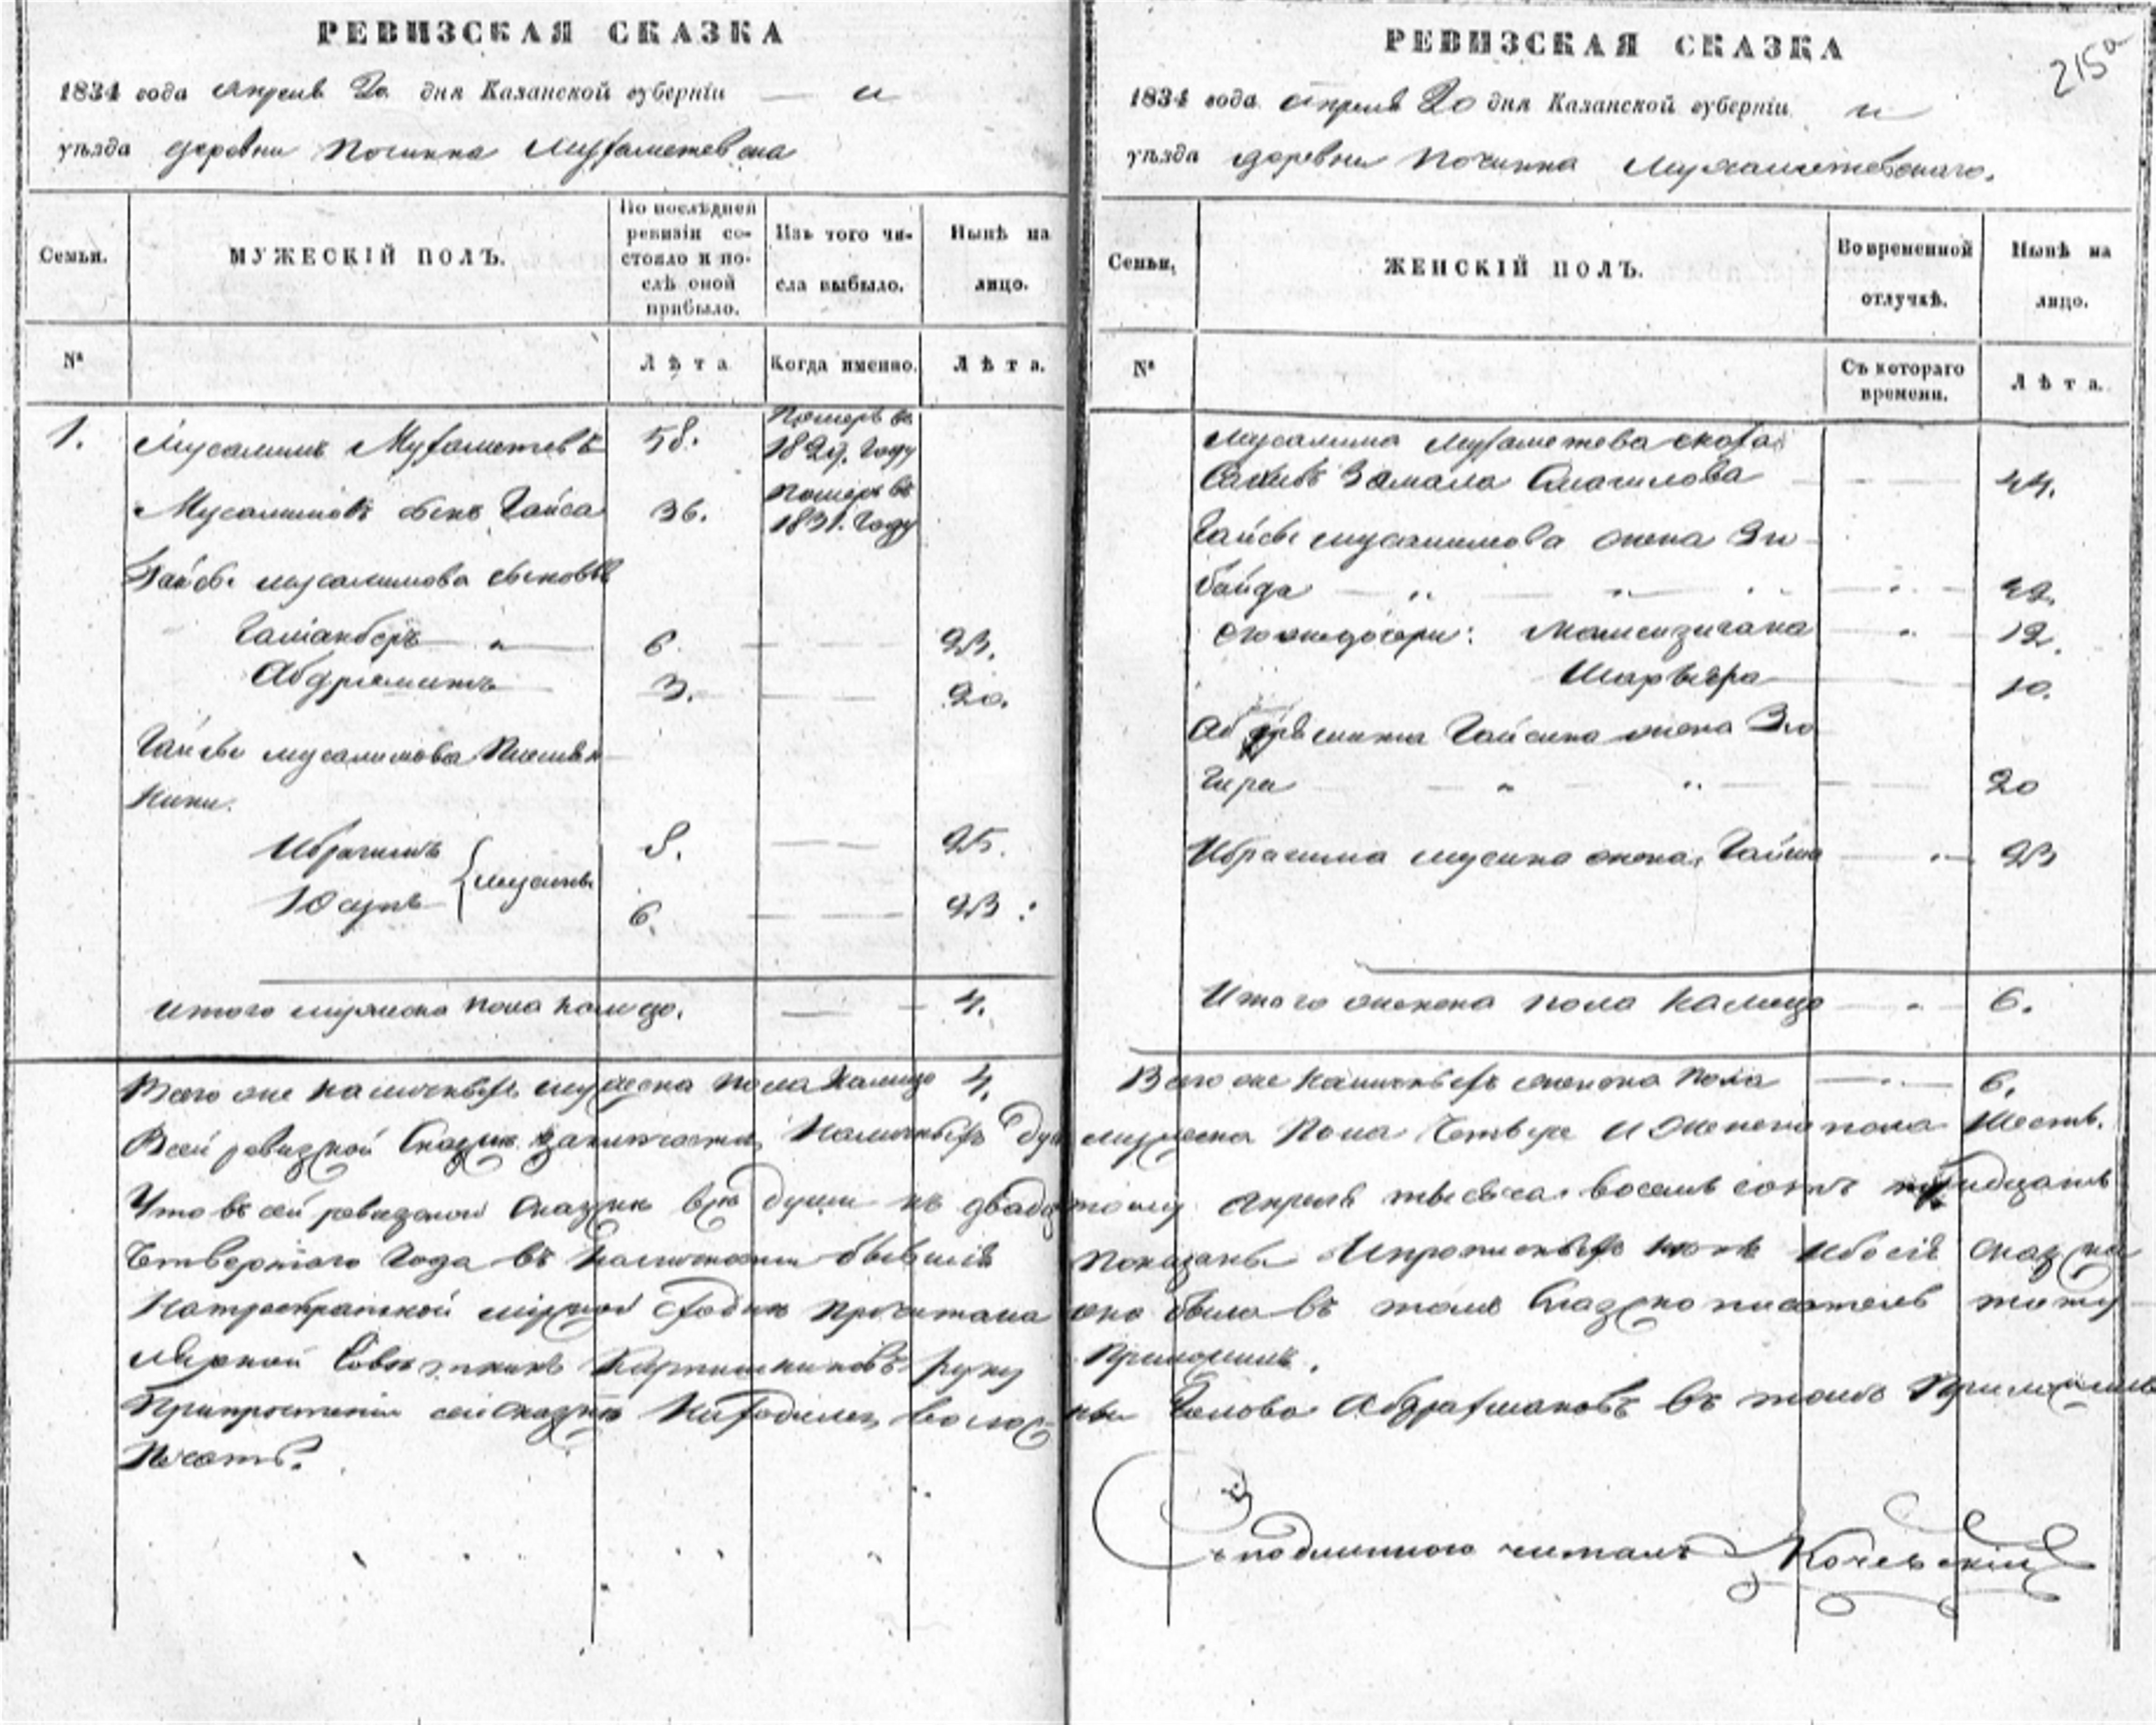 РЕВИЗСКАЯ СКАЗКА
1834 года апреля 20 дня Казанской губерніи — и
уѣзда деревни Починка Мухаметевска
Семьи.
МУЖЕСКІЙ ПОЛЪ.
По послѣдней ревизіи состояло и послѣ оной прибыло.
Изъ того числа выбыло.
Нынѣ на лицо.
№
Лѣта
Когда именно.
Лѣта.
1. Мусалимъ Мухаметевъ 58. Померъ въ 1829. году
Мусалимовъ сынъ Гайса 36. Померъ въ 1831. году
Гайсы мусалимова сыновья
6. 23.
3. 20.
Гайсы мусалимова племян
ники.
Ибрагимъ 8. 25.
Мусины
Юсупъ 6. 23.
Итого мужеска пола налицо. 4.
Всего же наличныхъ мужеска пола налицо 4.
РЕВИЗСКАЯ СКАЗКА
215а
1834 года апреля 20 дня Казанской губерніи и
уѣзда деревни Починка Мухаметевскаго.
Семьи.
ЖЕНСКІЙ ПОЛЪ.
Во временной отлучкѣ.
Нынѣ на лицо.
№
Съ котораго времени.
Лѣта.
Мусалима Мухаметева жена
Замала Смагилова 44.
Гайсы мусалимова жена Зю
байда 42.
его же дочери: 12.
10.
Гайсина жена Зю
гира 20
Ибрагима мусина жена Гайша 23
Итого женска пола налицо 6.
Всего же наличныхъ женска пола 6.
Всей ревизкой сказки наличныхъ душ мужеска пола четыре и женска пола шесть.
Что въ сей ревизской сказки все души къ двадцатому апреля тысяча восемь сотъ тридцать
четвертаго года въ наличности бывшія показаны и прописныхъ нѣтъ и бо сія сказка
мірской сходке прочитана она была въ томъ сказкописатель
руку приложилъ.
сей сказки находился волостны голова Абдрахмановъ въ томъ приложилъ
печать.
Съ подлиннаго читалъ